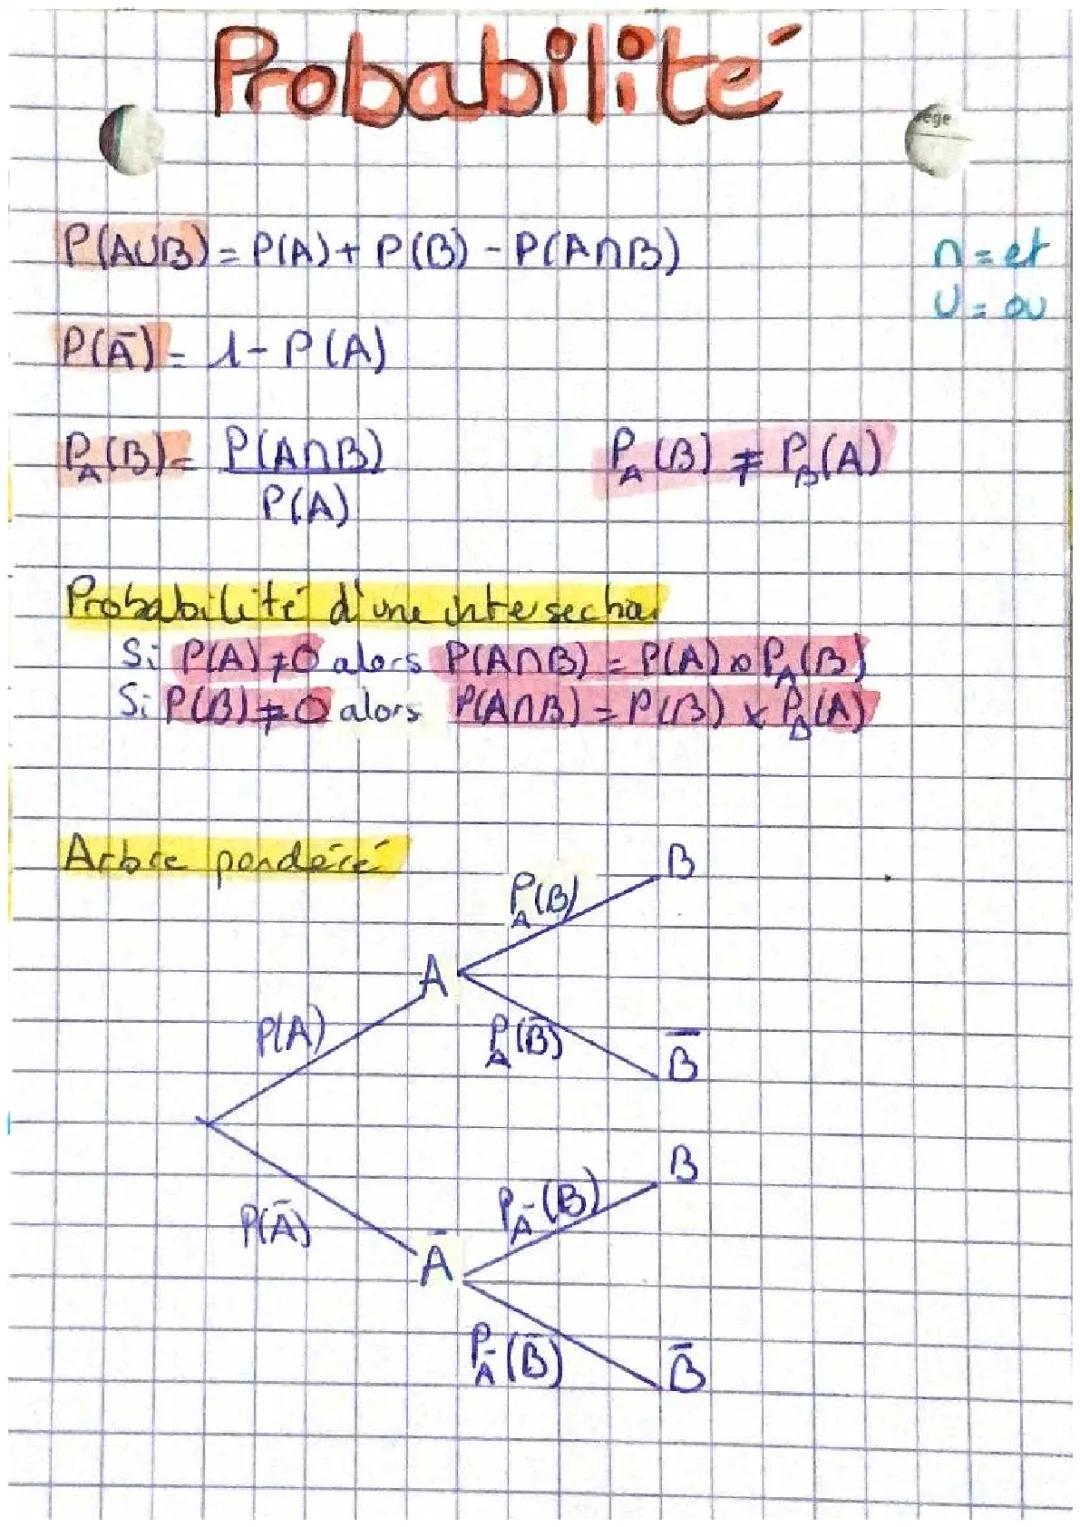 Probabilité
ège
P(A∪B) = P(A) + P(B) - P(A∩B)
∩ = et
∪ = ou
P(Ā) = 1 - P(A)
P_A(B) = P(A∩B) / P(A)
P_A(B) ≠ P_B(A)
Probabilité d'une intersection
Si P(A) ≠ 0 alors P(A∩B) = P(A) × P_A(B)
Si P(B) ≠ 0 alors P(A∩B) = P(B) × P_B(A)
Arbre pondéré
B
P_A(B)
A
P(A)
P_A(B̄)
B̄
B
P_Ā(B)
P(Ā)
Ā
P_Ā(B̄)
B̄